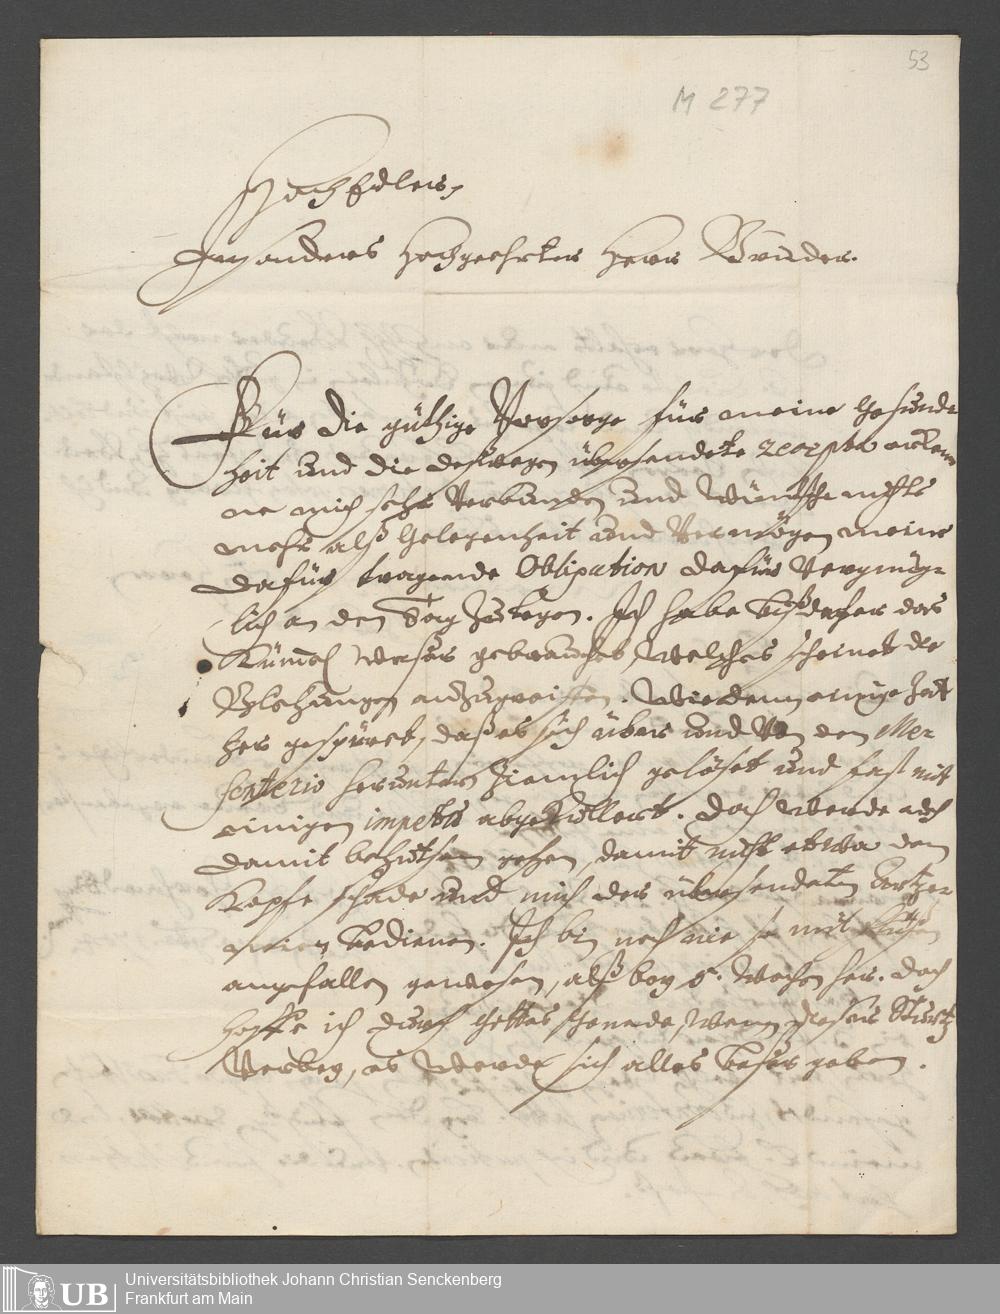 53
M 277
HochEdler,
Insonders Hochgeehrter Herr Bruder.
Für die gütige Vorsorge für meine Gesund-
heit und die deswegen übersendete recepta erken-
ne mich sehr verbunden und wünsche nichts
mehr alß Gelegenheit und Vermögen meine
dafür tragende Obligation dafür vergnüg-
lich an den Tag zu legen. Ich habe bißdaher das
Kümel waßer gebrauchet, welches scheinet die
Blehungen anzugreiffen. Wie denn einige Zeit
her gespüret, daß es sich über und von dem Me-
senterio herunter ziemlich gelöset und fast mit
einigen impetu abgekollert. Doch werde auch
damit behutsam gehen, damit nicht etwa dem
Kopfe schade und mich der übersendeten Artze-
neien bedienen. Ich bin noch nie so mit
angefallen gewesen, alß bey 5. Wochen her. Doch
hoffe ich durch Gottes Genade, wenn dieser
vorbey, es werde sich alles beßer geben.
UB
Universitätsbibliothek Johann Christian Senckenberg
Frankfurt am Main